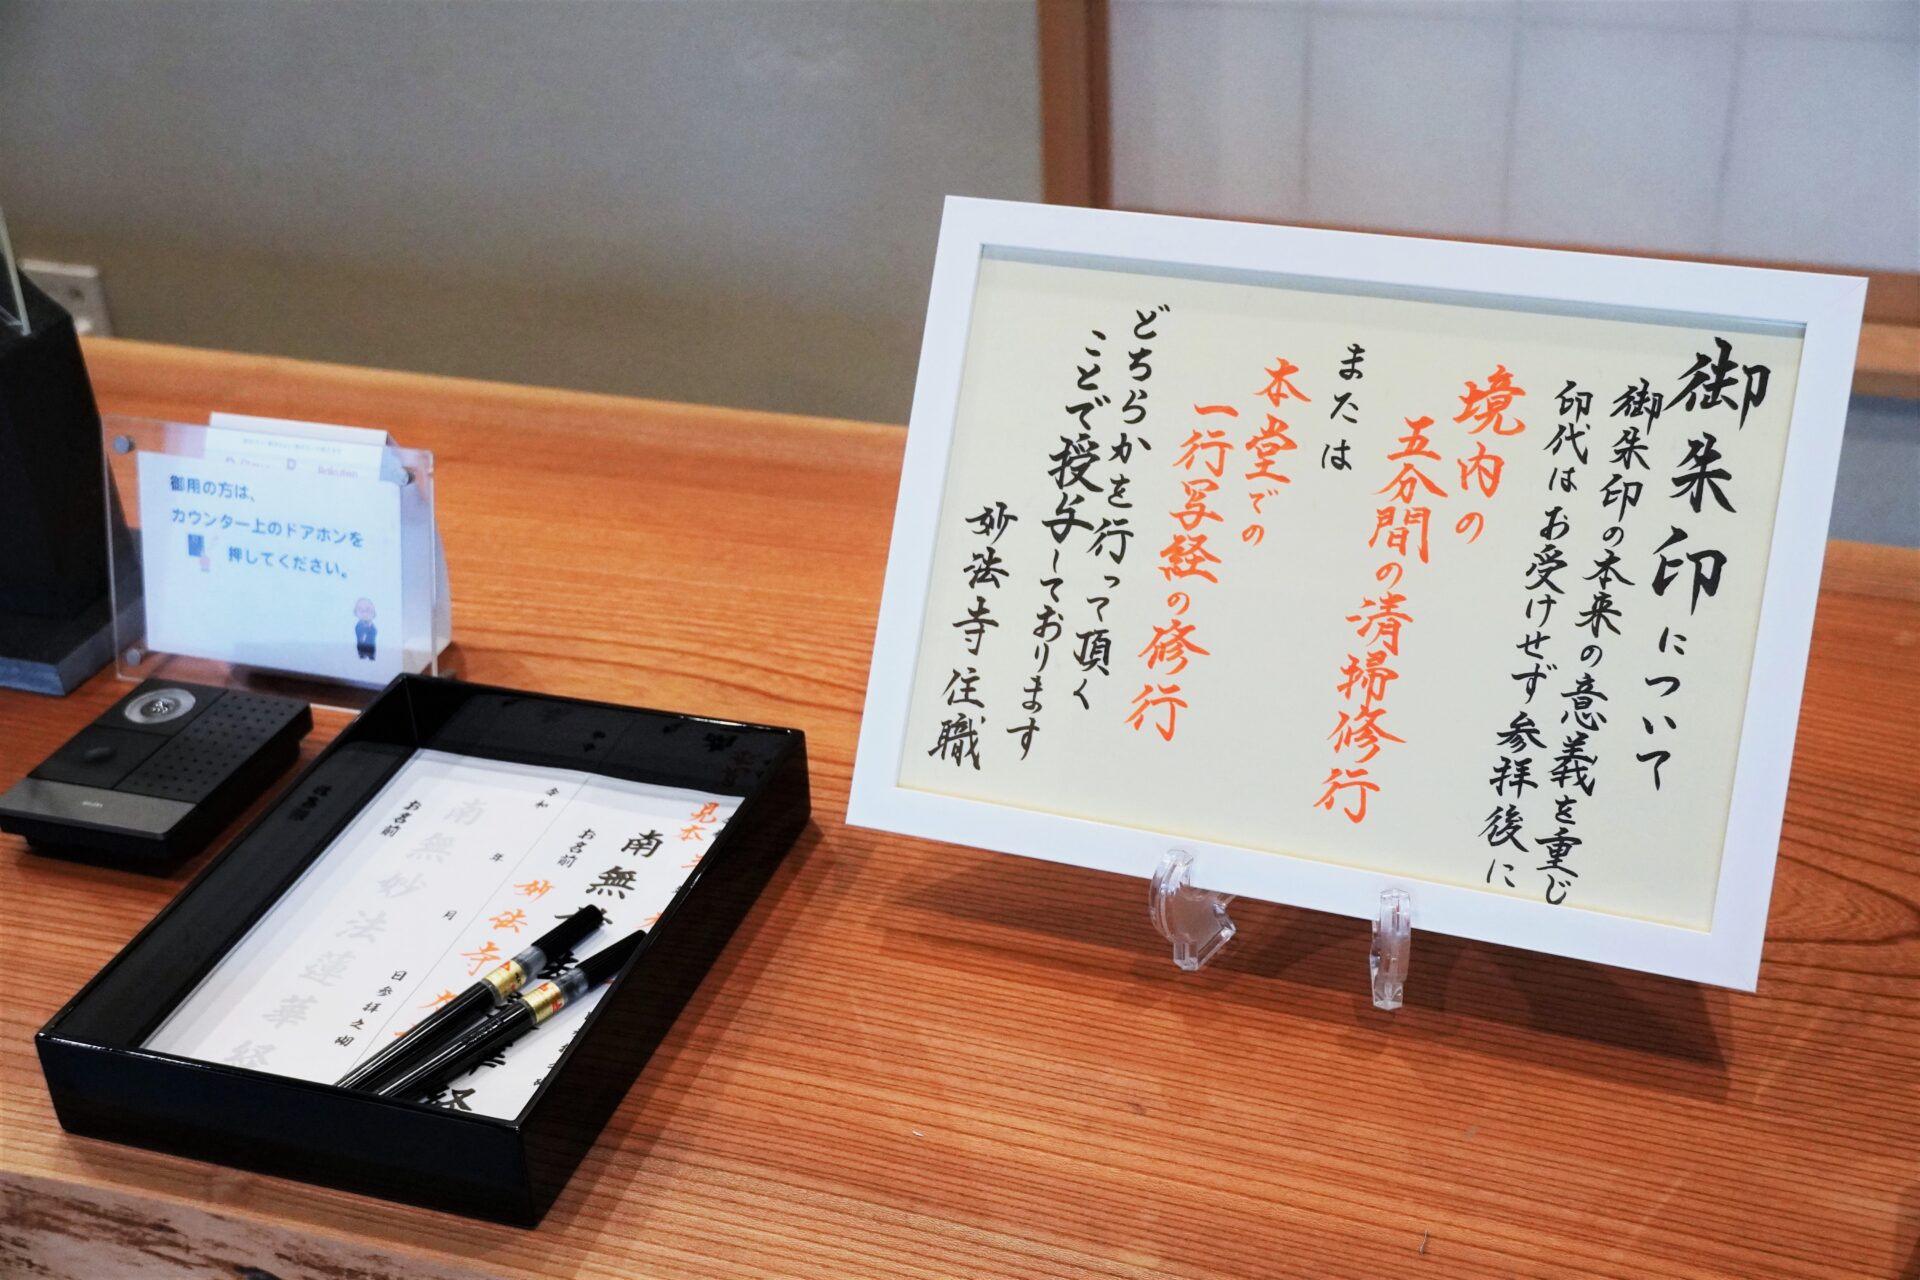 御朱印について
御朱印の本来の意義を重じ
印代はお受けせず参拝後に
境内の
五分間の清掃修行
または
本堂での
一行写経の修行
どちらかを行って頂く
ことで授与しております
妙法寺住職
御用の方は、
カウンター上のドアホンを
押してください。
見本
南無
経
お名前
妙法寺
令和 年 月 日参拝之砌
南無妙法蓮華経
お名前